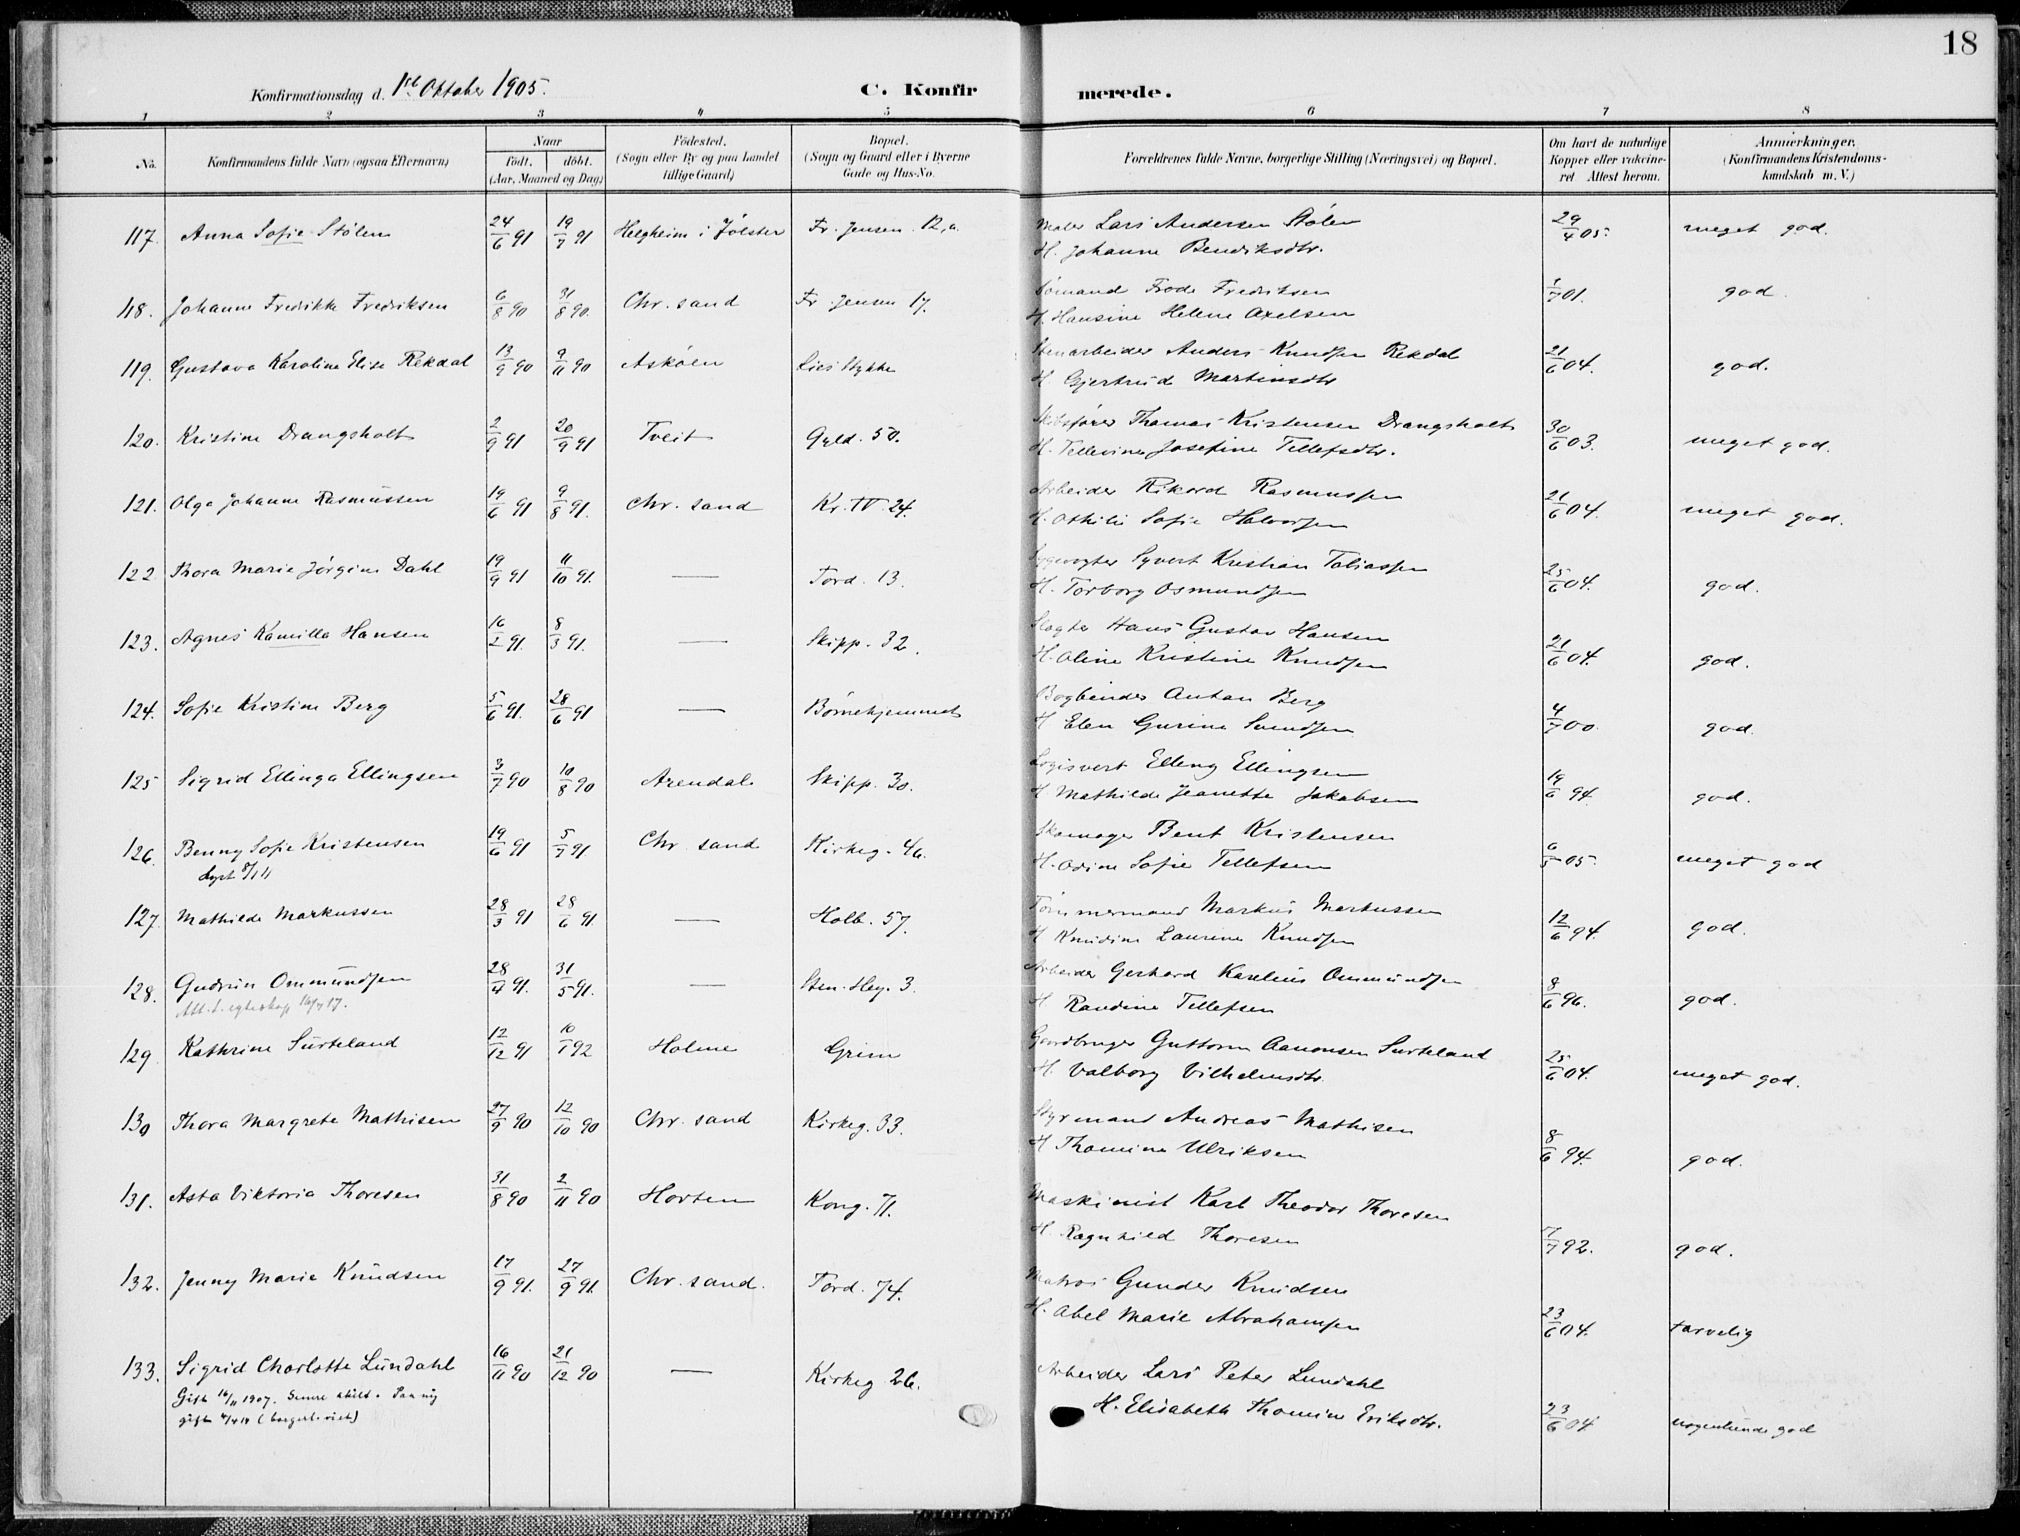 18
Konfirmationsdag d. 1ste Oktober 1905. C. Konfirmerede.
1 2 3 4 5 6 7 8
No. Konfirmandens fulde Navn (ogsaa Efternavn) Naar födt. döbt. (Aar, Maaned og Dag) Födested. (Sogn eller By og paa Landet tillige Gaard) Bopæl. (Sogn og Gaard eller i Byerne Gade og Hus-No. Forældrenes fulde Navne, borgerlige Stilling (Næringsvei) og Bopæl. Om havt de naturlige Kopper eller vakcineret. Attest herom. Anmærkninger. (Konfirmandens Kristendomskundskab m. V.)
117. Anna Sofie Stølen 24/6 91 19/7 91 Helgheim i Jølster Fr. Jensen. 12,a. Maler Lars Andersen Stølen 29/4 05. meget god.
H. Johanne Bendiksdtr.
118. Johanne Fredrikke Fredriksen 6/8 90 31/8 90. Chr. sand Fr. Jensen 17. Sømand Frode Fredriksen 1/7 01. god.
H. Hansine Helene Axelsen
119. Gustava Karoline Elise Rekdal 13/9 90 9/11 90 Askøen Lies Stykke Stenarbeider Anders Knudsen Rekdal 21/6 04. god.
H. Gjertrud Martinsdtr
120. Kristine Drangsholt 2/9 91 20/9 91 Tveit Gyld. 50. Skibsfører Thomas Kristensen Drangsholt 30/6 03. meget god.
H. Tellevine Josefine Tellefsdtr.
121. Olga Johanne Rasmussen 19/6 91 9/8 91. Chr. sand Kr. IV. 24. Arbeider Rikard Rasmussen 21/6 04. meget god.
H. Othilie Sofie Halvorsen
122. Thora Marie Jørgine Dahl 19/9 91 11/10 91. — Tord. 13. Sygevogter Syvert Kristian Tobiassen 25/6 04. god.
H. Torborg Osmundsen
123. Agnes Kamilla Hansen 16/2 91. 8/3 91. — Skipp. 32. Slagter Hans Gustav Hansen 21/6 04. god.
H. Oline Kristine Knudsen
124. Sofie Kristine Berg 5/6 91. 28/6 91 — Børnehjemmet Bogbinder Anton Berg 4/7 00. god.
H Elen Gurine Svendsen
125 Sigrid Ellinga Ellingsen 3/7 90 10/8 90 Arendal Skipp. 30. Logisvert Elling Ellingsen 19/6 94. god.
H Mathilde Jeanette Jakobsen
126. Benny Sofie Kristensen 19/6 91 5/7 91 Chr. sand Kirkeg. 46. Skomager Bent Kristensen 6/5 05. meget god
H. Odine Sofie Tellefsen
127. Mathilde Markussen 28/3 91 28/6 91. — Holb. 57. Tømmermand Markus Markussen 12/6 94. god.
H Knudine Laurine Knudsen
128. Gudrun Ommundsen 28/4 91. 31/5 91. — Sten. Hey. 3. Arbeider Gerhard Karelius Ommundsen 8/6 96. god.
H Randine Tellefsen
129. Kathrine Surteland 12/12 91 10/1 92 Holme Grim Gaardbruger Guttorm Aanonsen Surteland 25/6 04. meget god.
H. Valborg Vilhelmsdtr.
130 Thora Margrete Mathisen 27/9 90 12/10 90 Chr. sand Kirkeg. 33. Styrmand Andreas Mathisen 8/6 94. god.
H Thomine Ulriksen
131. Asta Viktoria Thoresen 31/8 90 2/11 90 Horten Kong. 71. Maskinist Karl Theodor Thoresen 7/7 92. god.
H. Ragnhild Thoresen
132. Jenny Marie Knudsen 17/9 91. 27/9 91. Chr. sand. Tord. 74. Matros Gunder Knudsen 23/6 04. tarvelig
H. Abel Marie Abrahamsen
133. Sigrid Charlotte Lundahl 16/11 90 21/12 90 — Kirkeg 26. Arbeider Lars Peter Lundahl 23/6 04. nogenlunde god
Gift 16/11 1907. Senere skilt. Paa ny H. Elisabeth Thomine Eriksdtr.
gift (borgerl. viet)